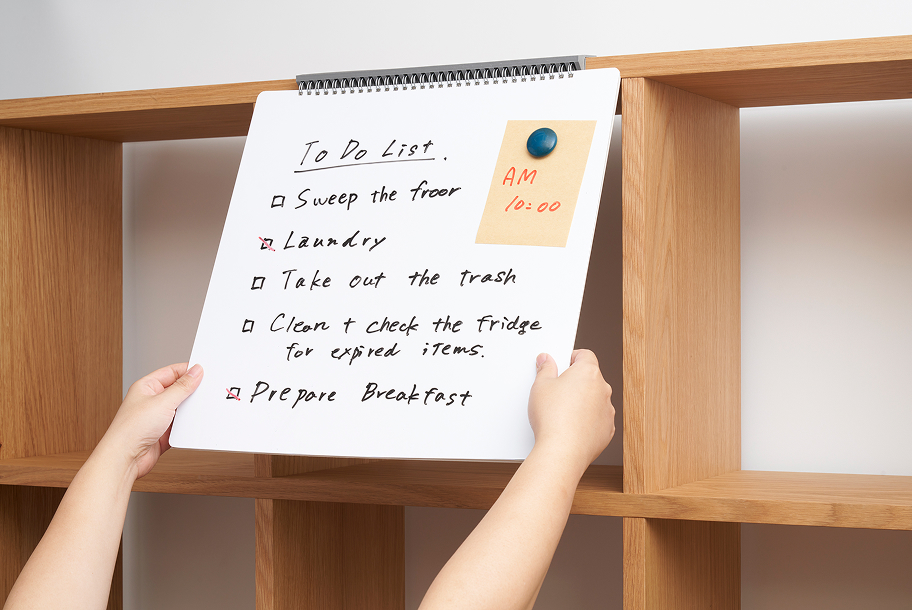 To Do List.
Sweep the froor
Laundry
Take out the trash
Clean + check the fridge
for expired items.
Prepare Breakfast
AM
10:00